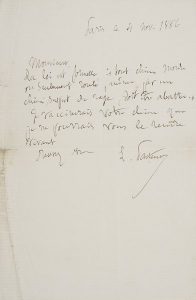 Paris le 4 nov. 1886
Monsieur
La loi est formelle : tout chien mordu
ou seulement roulé même par un
chien suspect de rage doit être abattu.
Je vaccinerais votre chien que
je ne pourrais vous le rendre
vivant
L. Pasteur